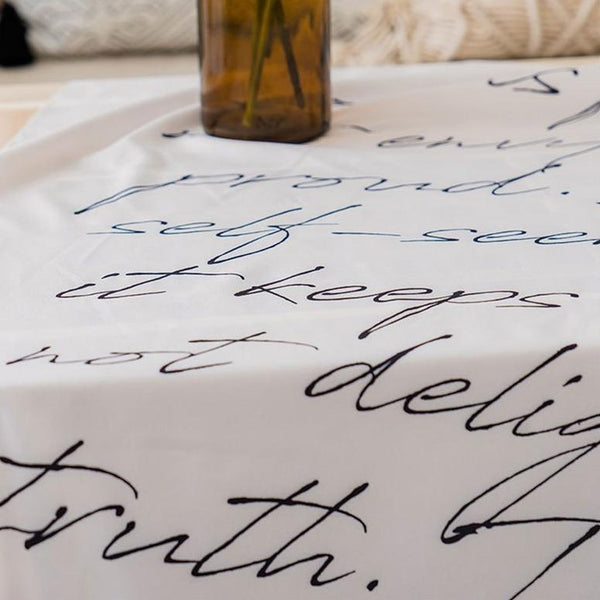 is
envy
proud.
self-see
it keeps
not delig
truth.